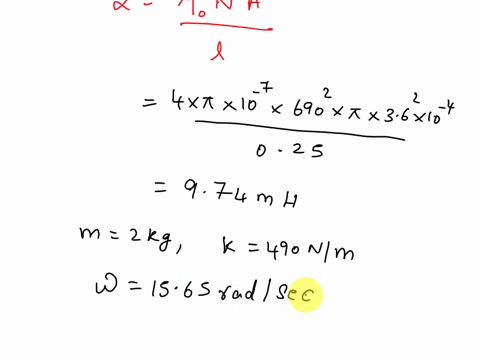 L = μ₀ N² A / l
= 4 × π × 10⁻⁷ × 690² × π × 3.6² × 10⁻⁴ / 0.25
= 9.74 mH
m = 2 kg, K = 490 N/m
ω = 15.65 rad/sec